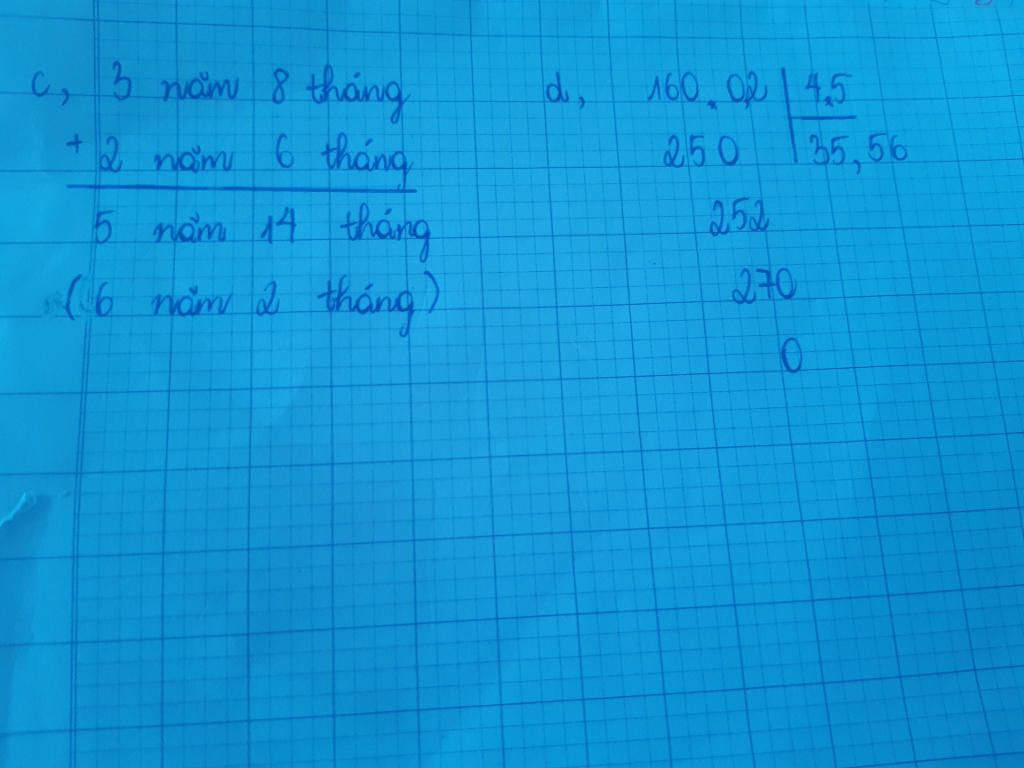 c, 3 năm 8 tháng
+ 2 năm 6 tháng
5 năm 14 tháng
(6 năm 2 tháng)
d, 160.0,2 4,5
250 35,56
252
270
0